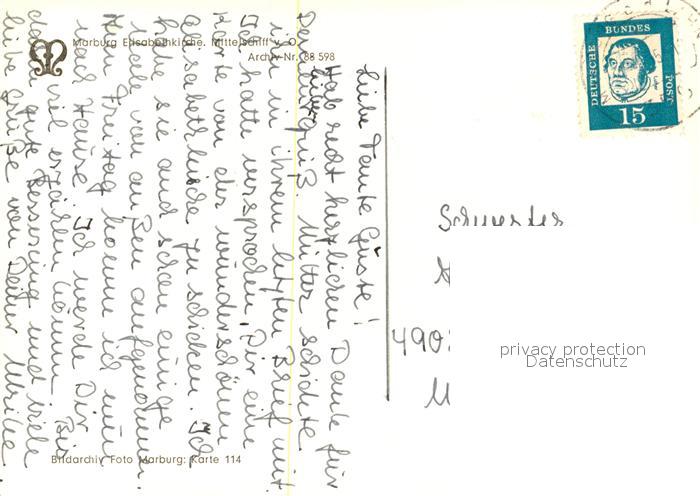 Marburg Elisabethkirche. Mittelschiff v. O.
Archiv-Nr. 88 598
DEUTSCHE
BUNDES
POST
15
Liebe Tante Guste!
Hab recht herzlichen Dank für
Deinen lieben Gruß. Mutter schickte
ihn in ihrem letzten Brief mit.
Ich hatte versprochen, Dir eine
Karte von der wunderschönen
Elisabethkirche zu schicken. Ich
habe sie auch schon einige
male von außen aufgenommen.
Am Freitag komme ich nun
nach Hause. Ich werde Dir
viel erzählen können. Bis
dahin gute Besserung und viele
liebe Grüße von Deiner Ulrike
Schwester
490
privacy protection
Datenschutz
Bildarchiv Foto Marburg: Karte 114